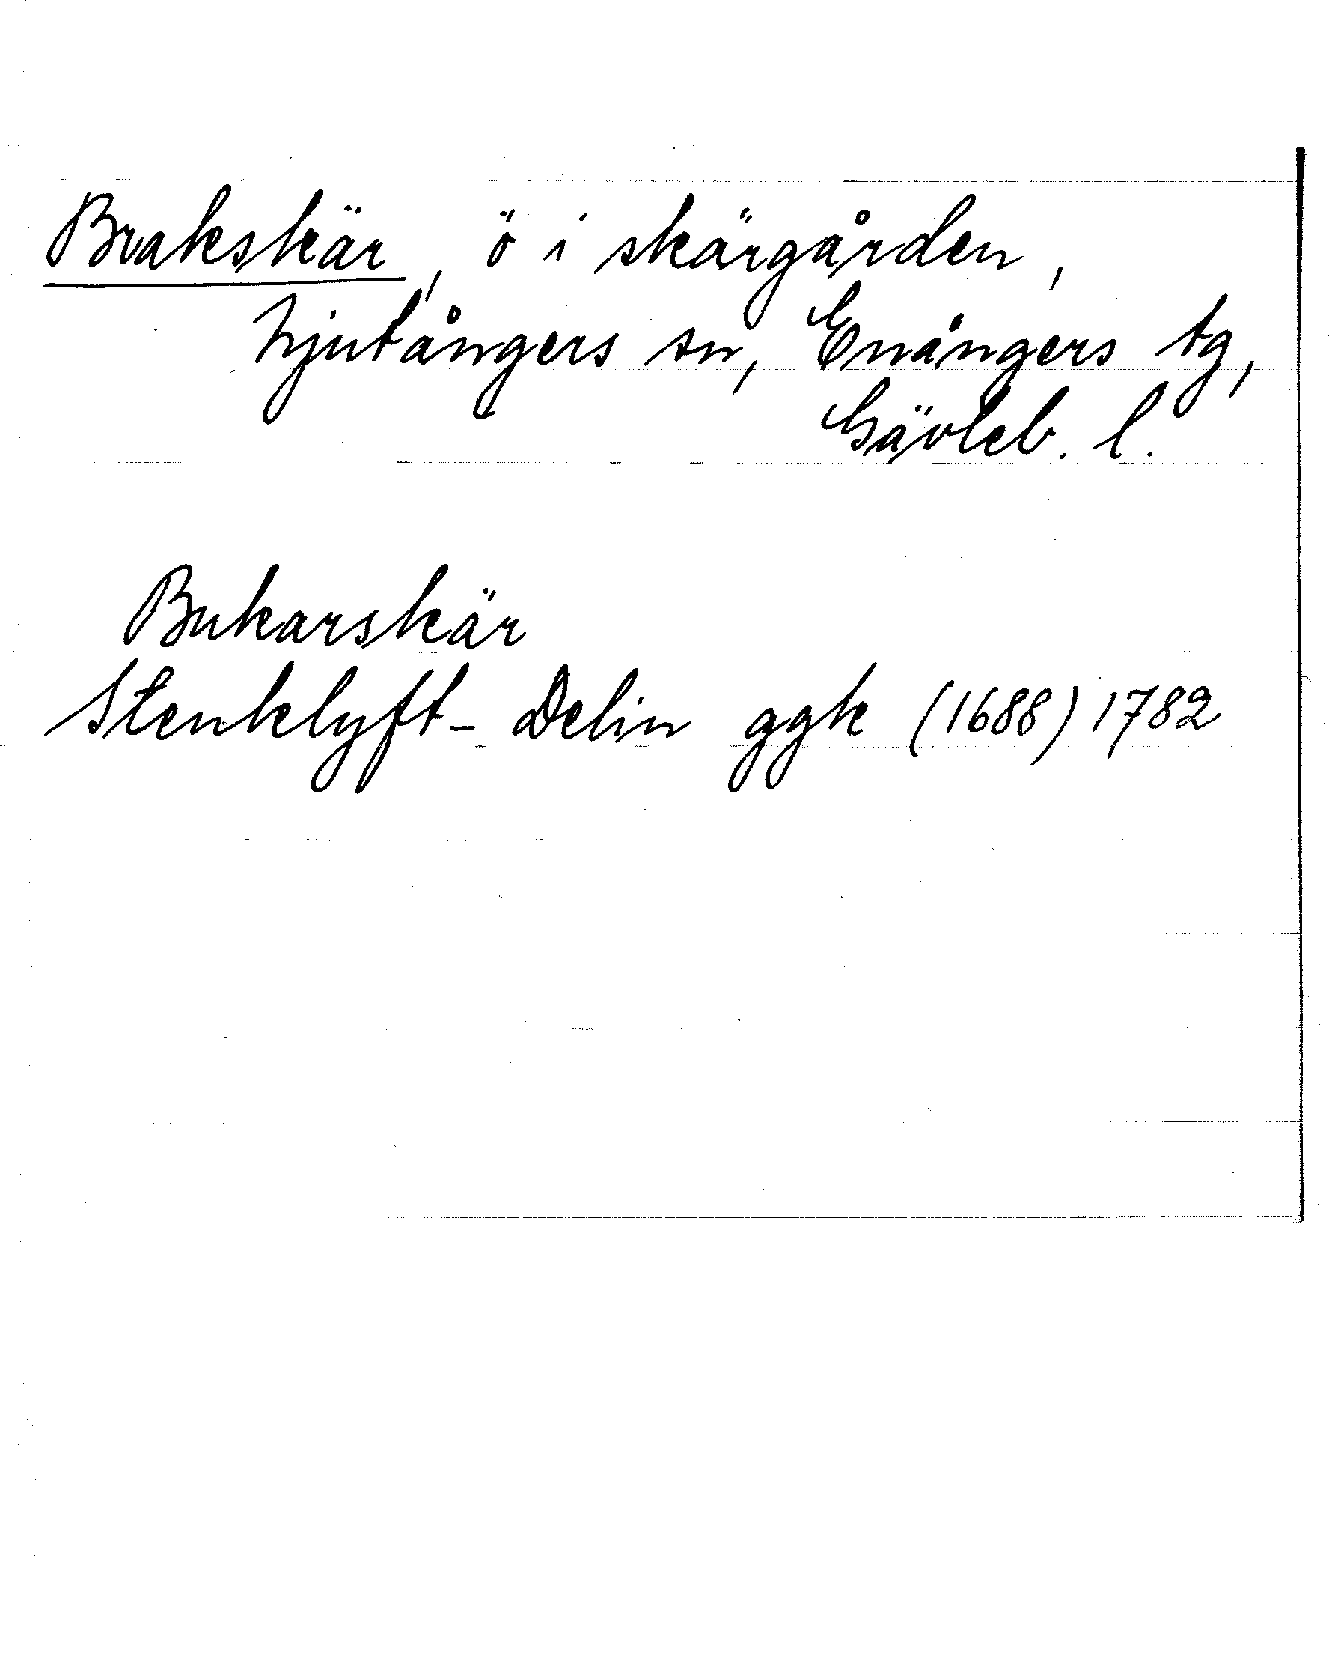 Brakskär, ö i skärgården,
Njutångers sn, Enångers tg,
Gävleb. l.
Bukarskär
Stenklyft-Delin ggk (1688) 1782